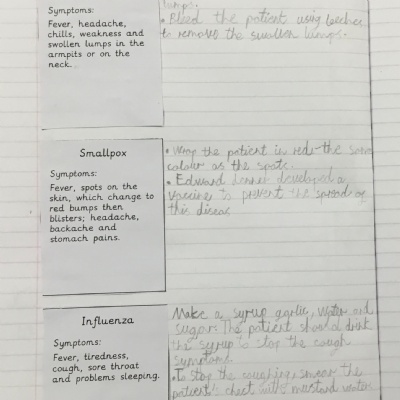 Symptoms:
Fever, headache,
chills, weakness and
swollen lumps in the
armpits or on the
neck.
lumps.
• Bleed the patient using leeches
to remove the swollen lumps.
Smallpox
Symptoms:
Fever, spots on the
skin, which change to
red bumps then
blisters; headache,
backache and
stomach pains.
• Wrap the patient in red - the same
colour as the spots.
• Edward Jenner developed a
vaccine to prevent the spread of
this diseas
Influenza
Symptoms:
Fever, tiredness,
cough, sore throat
and problems sleeping.
Make a syrup garlic, water and
sugar. The patient should drink
the syrup to stop the cough
symptoms.
• To stop the coughing, smear the
patient's chest with mustard